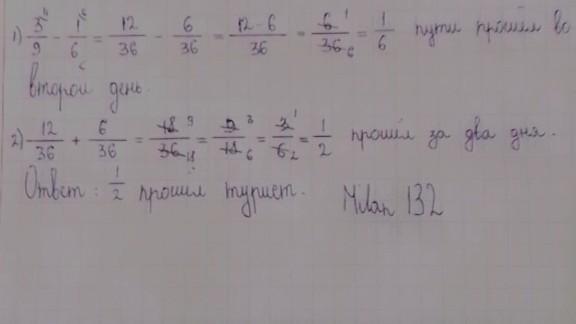 1) 3/9 - 1/6 = 12/36 - 6/36 = 12-6/36 = 6/36 = 1/6 пути прошёл во
второй день.
2) 12/36 + 6/36 = 18/36 = 9/18 = 3/6 = 1/2 прошёл за два дня.
Ответ: 1/2 прошёл турист. Milan 132